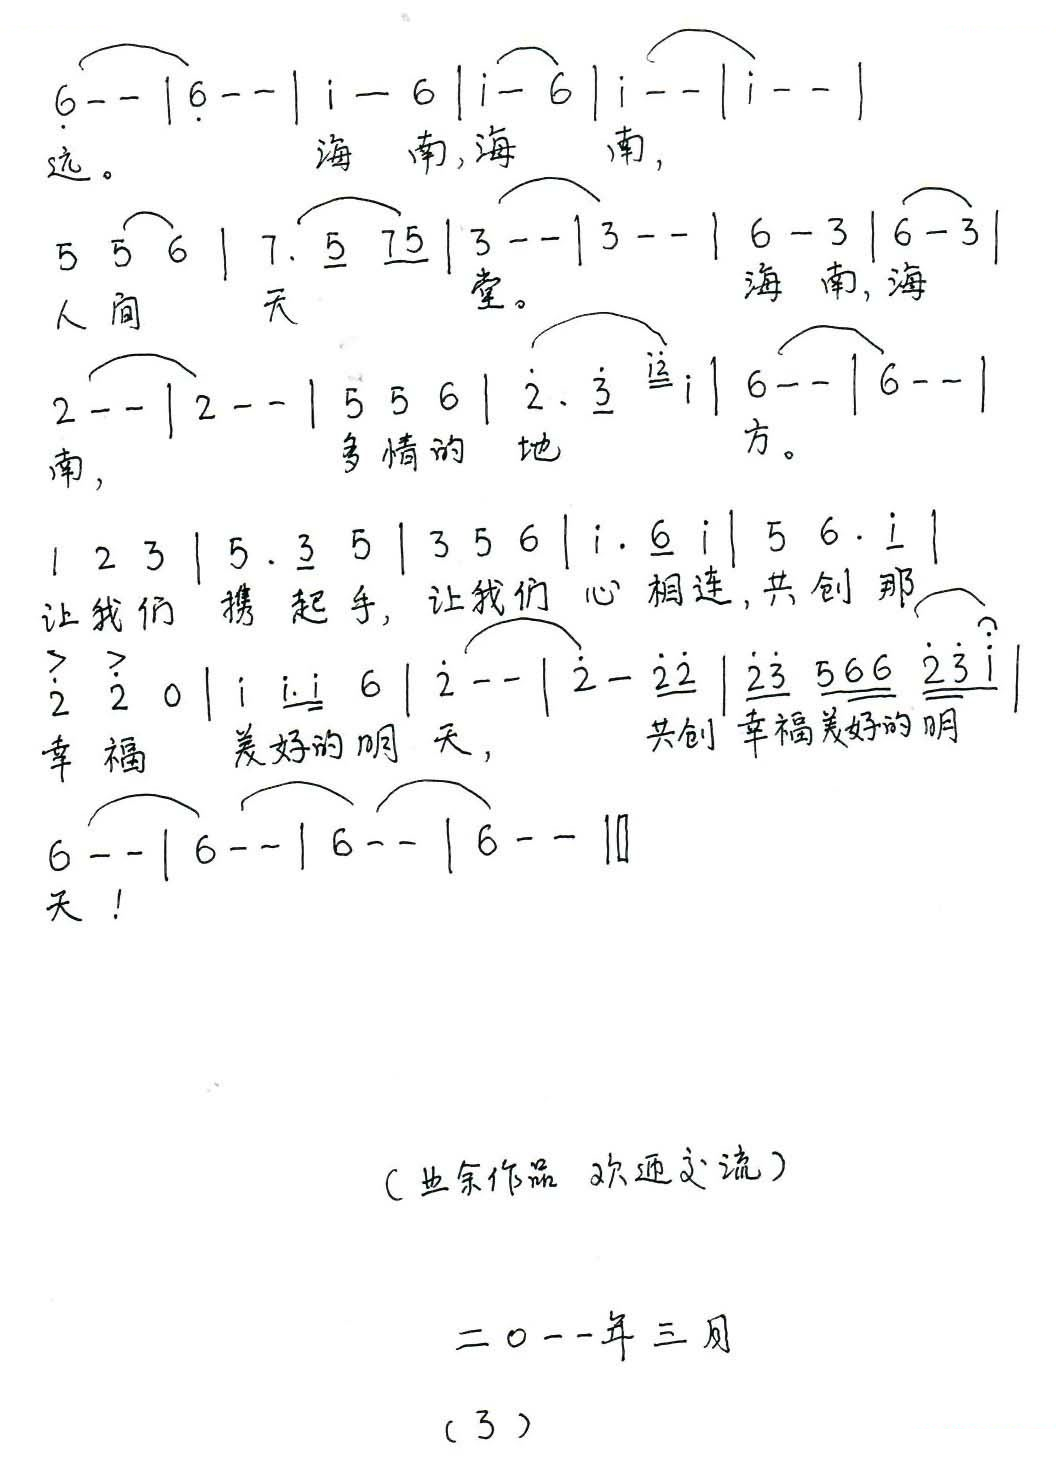 6̣ - - | 6̣ - - | i — 6 | i — 6 | i - - | i - - |
远。 海 南, 海 南,
5 5 6 | 7. 5 75 | 3 - - | 3 - - | 6 - 3 | 6 - 3 |
人 间 天 堂。 海 南, 海
2 - - | 2 - - | 5 5 6 | 2̇ . 3̇ i̇2̇ i | 6 - - | 6 - - |
南, 多 情 的 地 方。
1 2 3 | 5 . 3 5 | 3 5 6 | i . 6 i | 5 6 . i |
让 我 们 携 起 手, 让 我 们 心 相 连, 共 创 那
> >
2̇ 2̇ 0 | i i.i 6 | 2̇ - - | 2̇ - 2̇2̇ | 2̇3̇ 566 2̇3̇i |
幸 福 美 好的 明 天, 共创 幸福 美好的 明
6 - - | 6 - - | 6 - - | 6 - - ‖
天 !
(业余作品 欢迎交流)
二0一一年三月
(3)